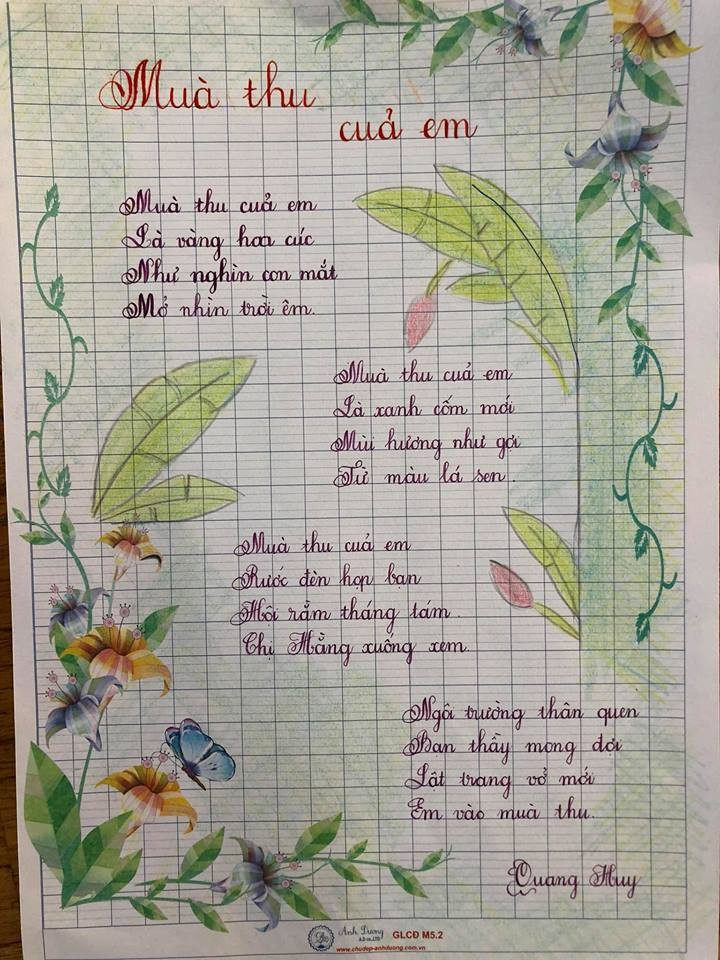 Muà thu
cuả em
Muà thu cuả em
Là vàng hoa cúc
Như nghìn con mắt
Mở nhìn trời êm.
Muà thu cuả em
Là xanh cốm mới
Mùi hương như gợi
Từ màu lá sen.
Muà thu cuả em
Rước đèn họp bạn
Hội rằm tháng tám.
Chị Hằng xuống xem.
Ngôi trường thân quen
Bạn thầy mong đợi
Lật trang vở mới
Em vào muà thu.
Quang Huy
Anh Dương GLCĐ M5.2
A.D co.,LTD
www.chudep-anhduong.com.vn